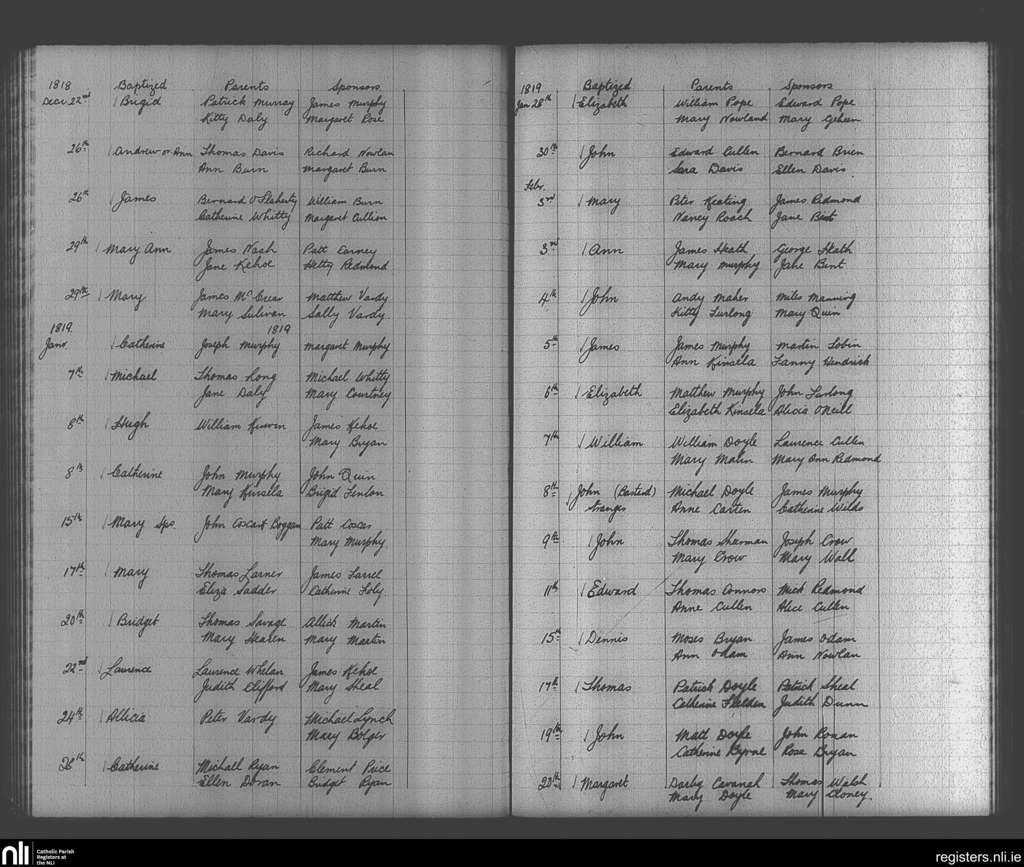 1818 Baptized Parents Sponsors
Decr 22nd Brigid Patrick Murray James Murphy
Kitty Daly Margaret Rose
26th Andrew or Ann Thomas Davis Richard Nowlan
Ann Burn Margaret Burn
26th James Bernard O'Flaherty William Burn
Catherine Whitty Margaret Cullen
29th Mary Ann James Nash Patt Carney
Jane Kehoe Hetty Redmond
29th Mary James McCrear Matthew Vardy
Mary Sulivan Sally Vardy
1819 1819
Jany Catherine Joseph Murphy Margaret Murphy
7th Michael Thomas Long Michael Whitty
Jane Daly Mary Courtney
8th Hugh William James Kehoe
Mary Bryan
8th Catherine John Murphy John Quin
Mary Kinsela Brigid Fenlon
15th Mary Sps. John Coscart Boggan Patt Coscar
Mary Murphy
17th Mary Thomas Larner James Farrel
Eliza Sadder Catherine Foly
20th Bridget Thomas Savage Allick Martin
Mary Hearen Mary Martin
22nd Laurence Laurence Whelan James Kehoe
Judith Clifford Mary Sheal
24th Allicia Peter Vardy Michael Lynch
Mary Bolger
26th Catherine Michael Ryan Clement Price
Ellen Doran Bridget Ryan
1819 Baptized Parents Sponsors
Jan 28th Elizabeth William Pope Edward Pope
Mary Nowland Mary Geheen
30th John Edward Cullen Bernard Brien
Sara Davis Ellen Davis
Febr.
3rd Mary Peter Keating James Redmond
Nancy Roach Jane Bent
3rd Ann James Heath George Heath
Mary Murphy Jane Bent
4th John Andy Maher Miles Manning
Kitty Furlong Mary Quin
5th James James Murphy Martin Tobin
Ann Kinsela Fanny Hendrick
6th Elizabeth Matthew Murphy John Furlong
Elizabeth Kinsela Alicia O'Neill
7th William William Doyle Laurence Cullen
Mary Malin Mary Ann Redmond
8th John (Bastard) Michael Doyle James Murphy
Granges Anne Carten Catherine Wilds
9th John Thomas Sherman Joseph Crow
Mary Crow Mary Wall
11th Edward Thomas Connors Mick Redmond
Anne Cullen Alice Cullen
15th Dennis Moses Bryan James Odam
Ann Odam Ann Nowlan
17th Thomas Patrick Doyle Patrick Sheal
Catherine Judith Dunn
19th John Matt Doyle John Ronan
Catherine Byrne Rose Bryan
22th Margaret Darby Cavanah Thomas Walsh
Mary Doyle Mary Cloney
nli Catholic Parish
Registers at
the NLI
registers.nli.ie